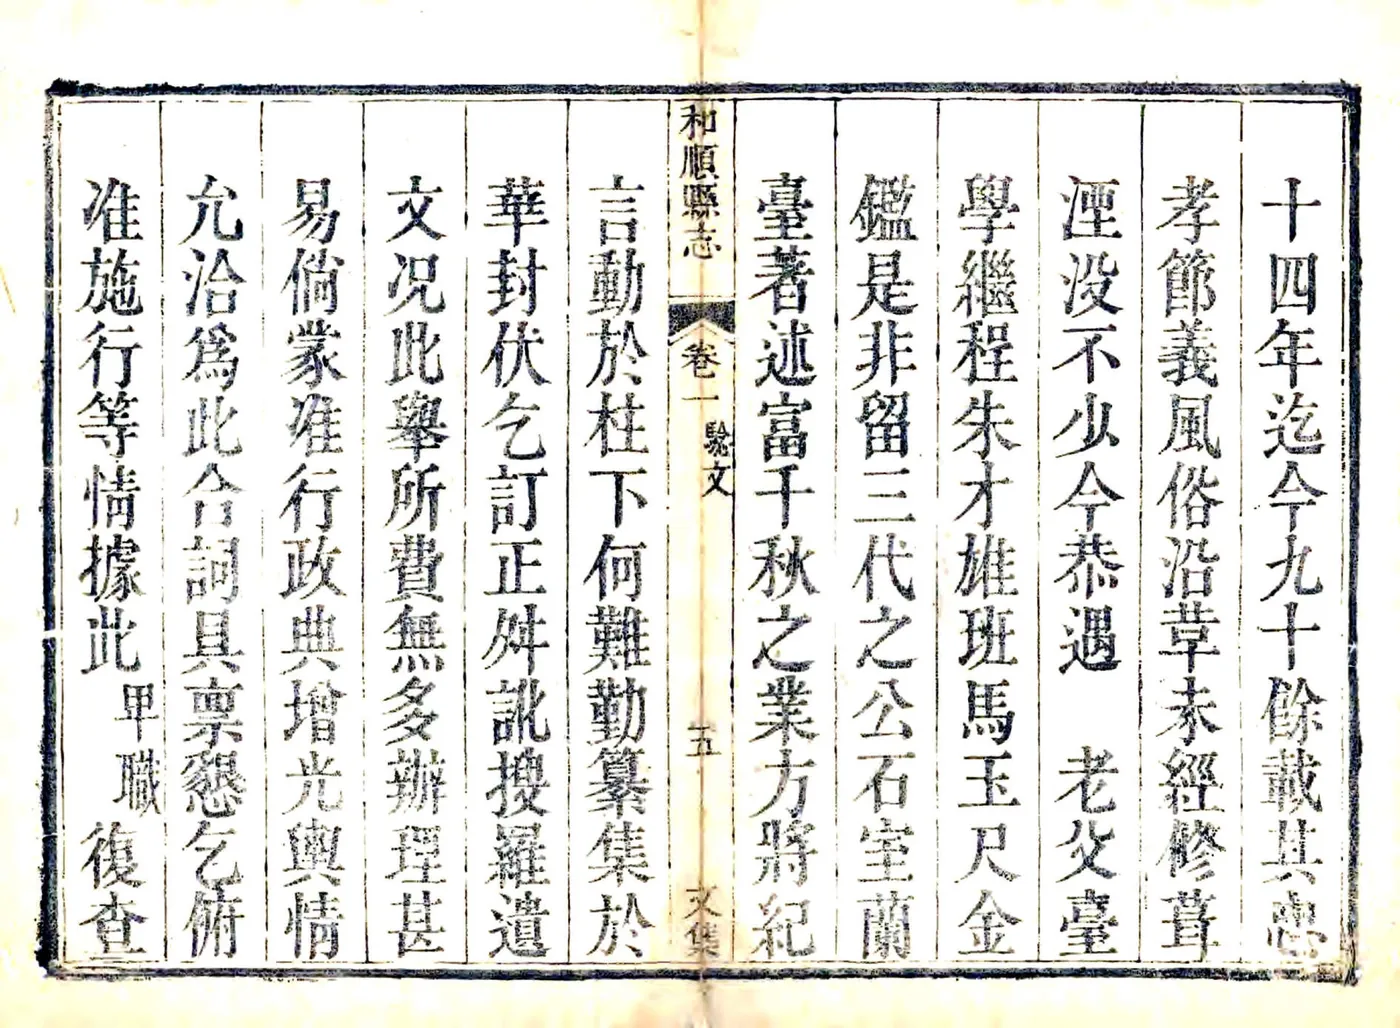 十四年迄今九十餘載其忠
孝節義風俗沿革未經修葺
湮没不少今恭遇　老父臺
學繼程朱才雄班馬玉尺金
鑑是非留三代之公石室蘭
臺著述富千秋之業方將紀
和順縣志　卷一　騐文　五　文集
言動於柱下何難勤纂集於
華封伏乞訂正舛訛搜羅遺
文况此舉所費無多辦理甚
易倘蒙准行政典增光輿情
允洽爲此合詞具禀懇乞俯
准施行等情據此甲職復查